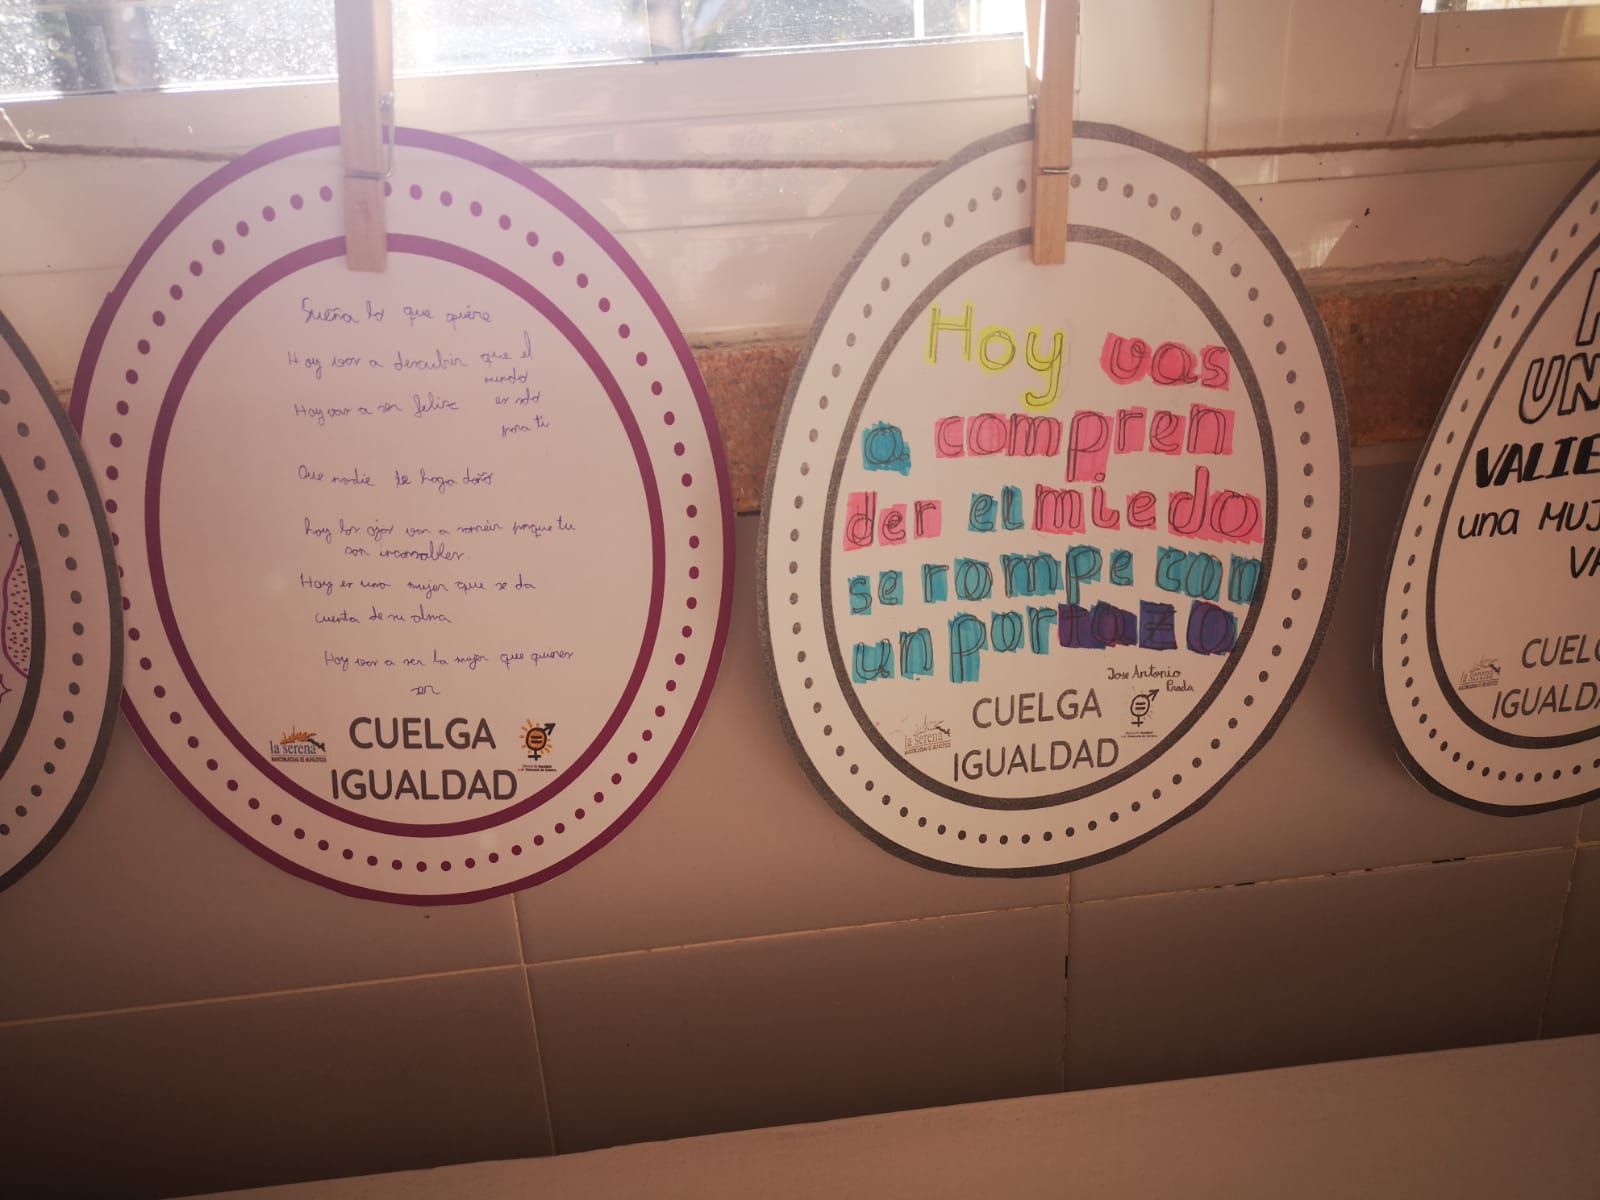 Sueña lo que quiere
Hoy vas a descubrir que el
mundo
Hoy vas a ser feliz es solo
para ti
Que nadie te haga daño
hoy los ojos van a sonreir porque tu
son incansables
Hoy es una mujer que se da
cuenta de su alma
Hoy vas a ser la mujer que quieres
ser
la serena
MANCOMUNIDAD DE MUNICIPIOS
CUELGA
IGUALDAD
Hoy vas
a compren
der el miedo
se rompe con
un portazo
Jose Antonio
Prada
la serena
CUELGA
IGUALDAD
UN
VALIE
una MUJ
VA
la serena
CUELG
IGUALDA